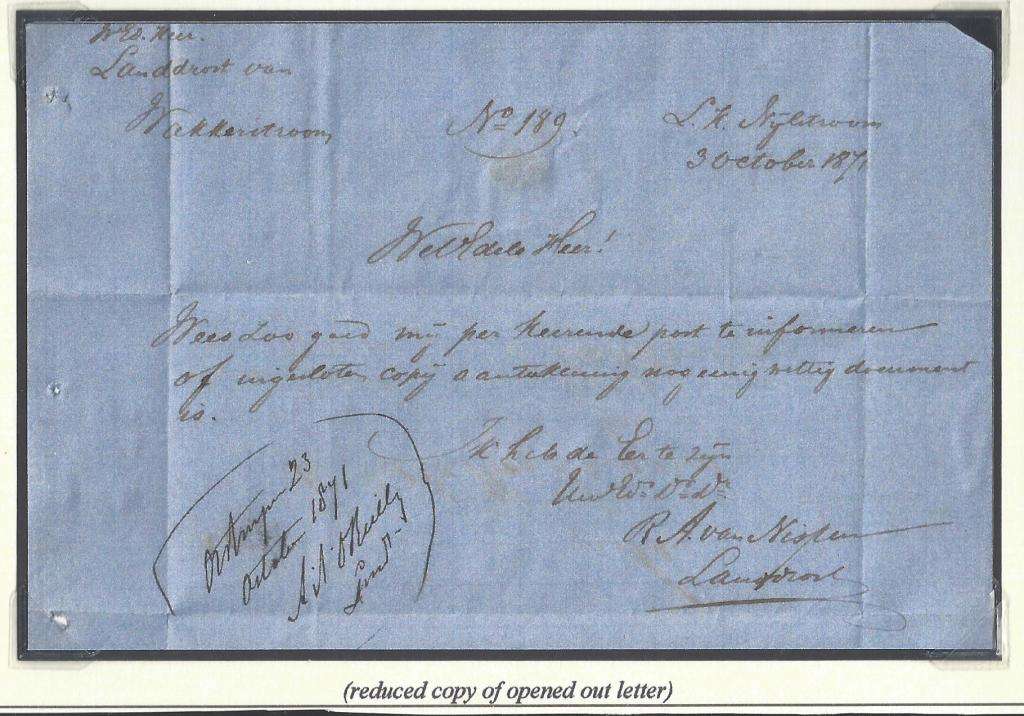 WEd. Heer.
Landdrost van
Wakkerstroom
No 189.
L. K. Nylstroom
3 October 1871
WelEdele Heer!
Wees Zoo goed mij per keerende post te informeren
of ingesloten copij aantekening nog eenig wettig document
is.
Ik heb de Eer te zijn
Uw Ed. Dr. Dr.
R. A. van Nispen
Landdrost
Ontvangen 23
October 1871
A. A. O'Reilly
Landt.
(reduced copy of opened out letter)